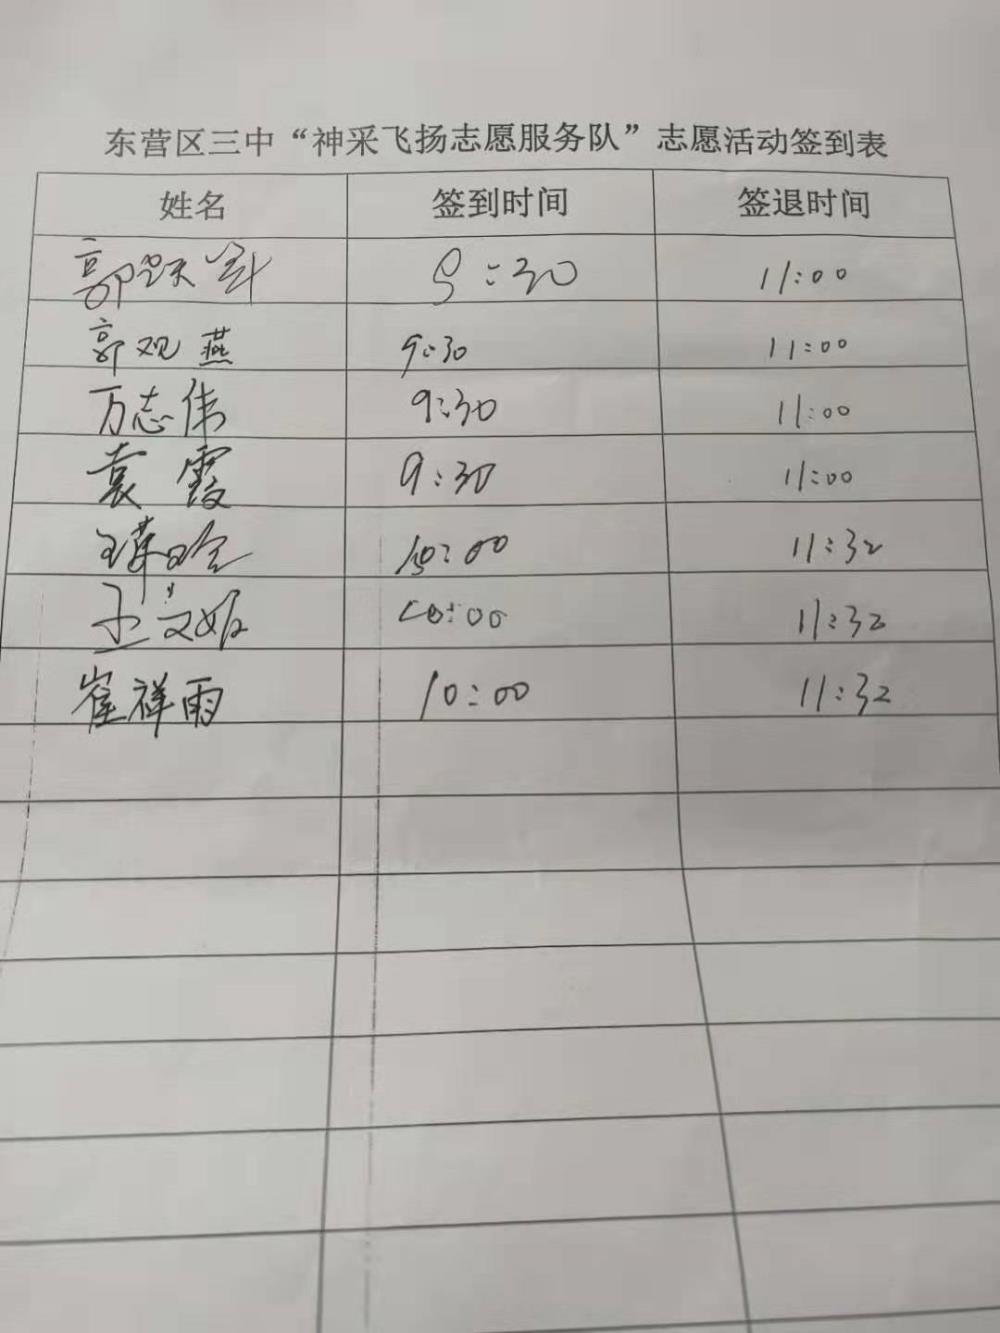 东营区三中“神采飞扬志愿服务队”志愿活动签到表
姓名 签到时间 签退时间
郭跃军 9:30 11:00
郭观燕 9:30 11:00
万志伟 9:30 11:00
袁霞 9:30 11:00
10:00 11:32
王文娟 10:00 11:32
崔祥雨 10:00 11:32